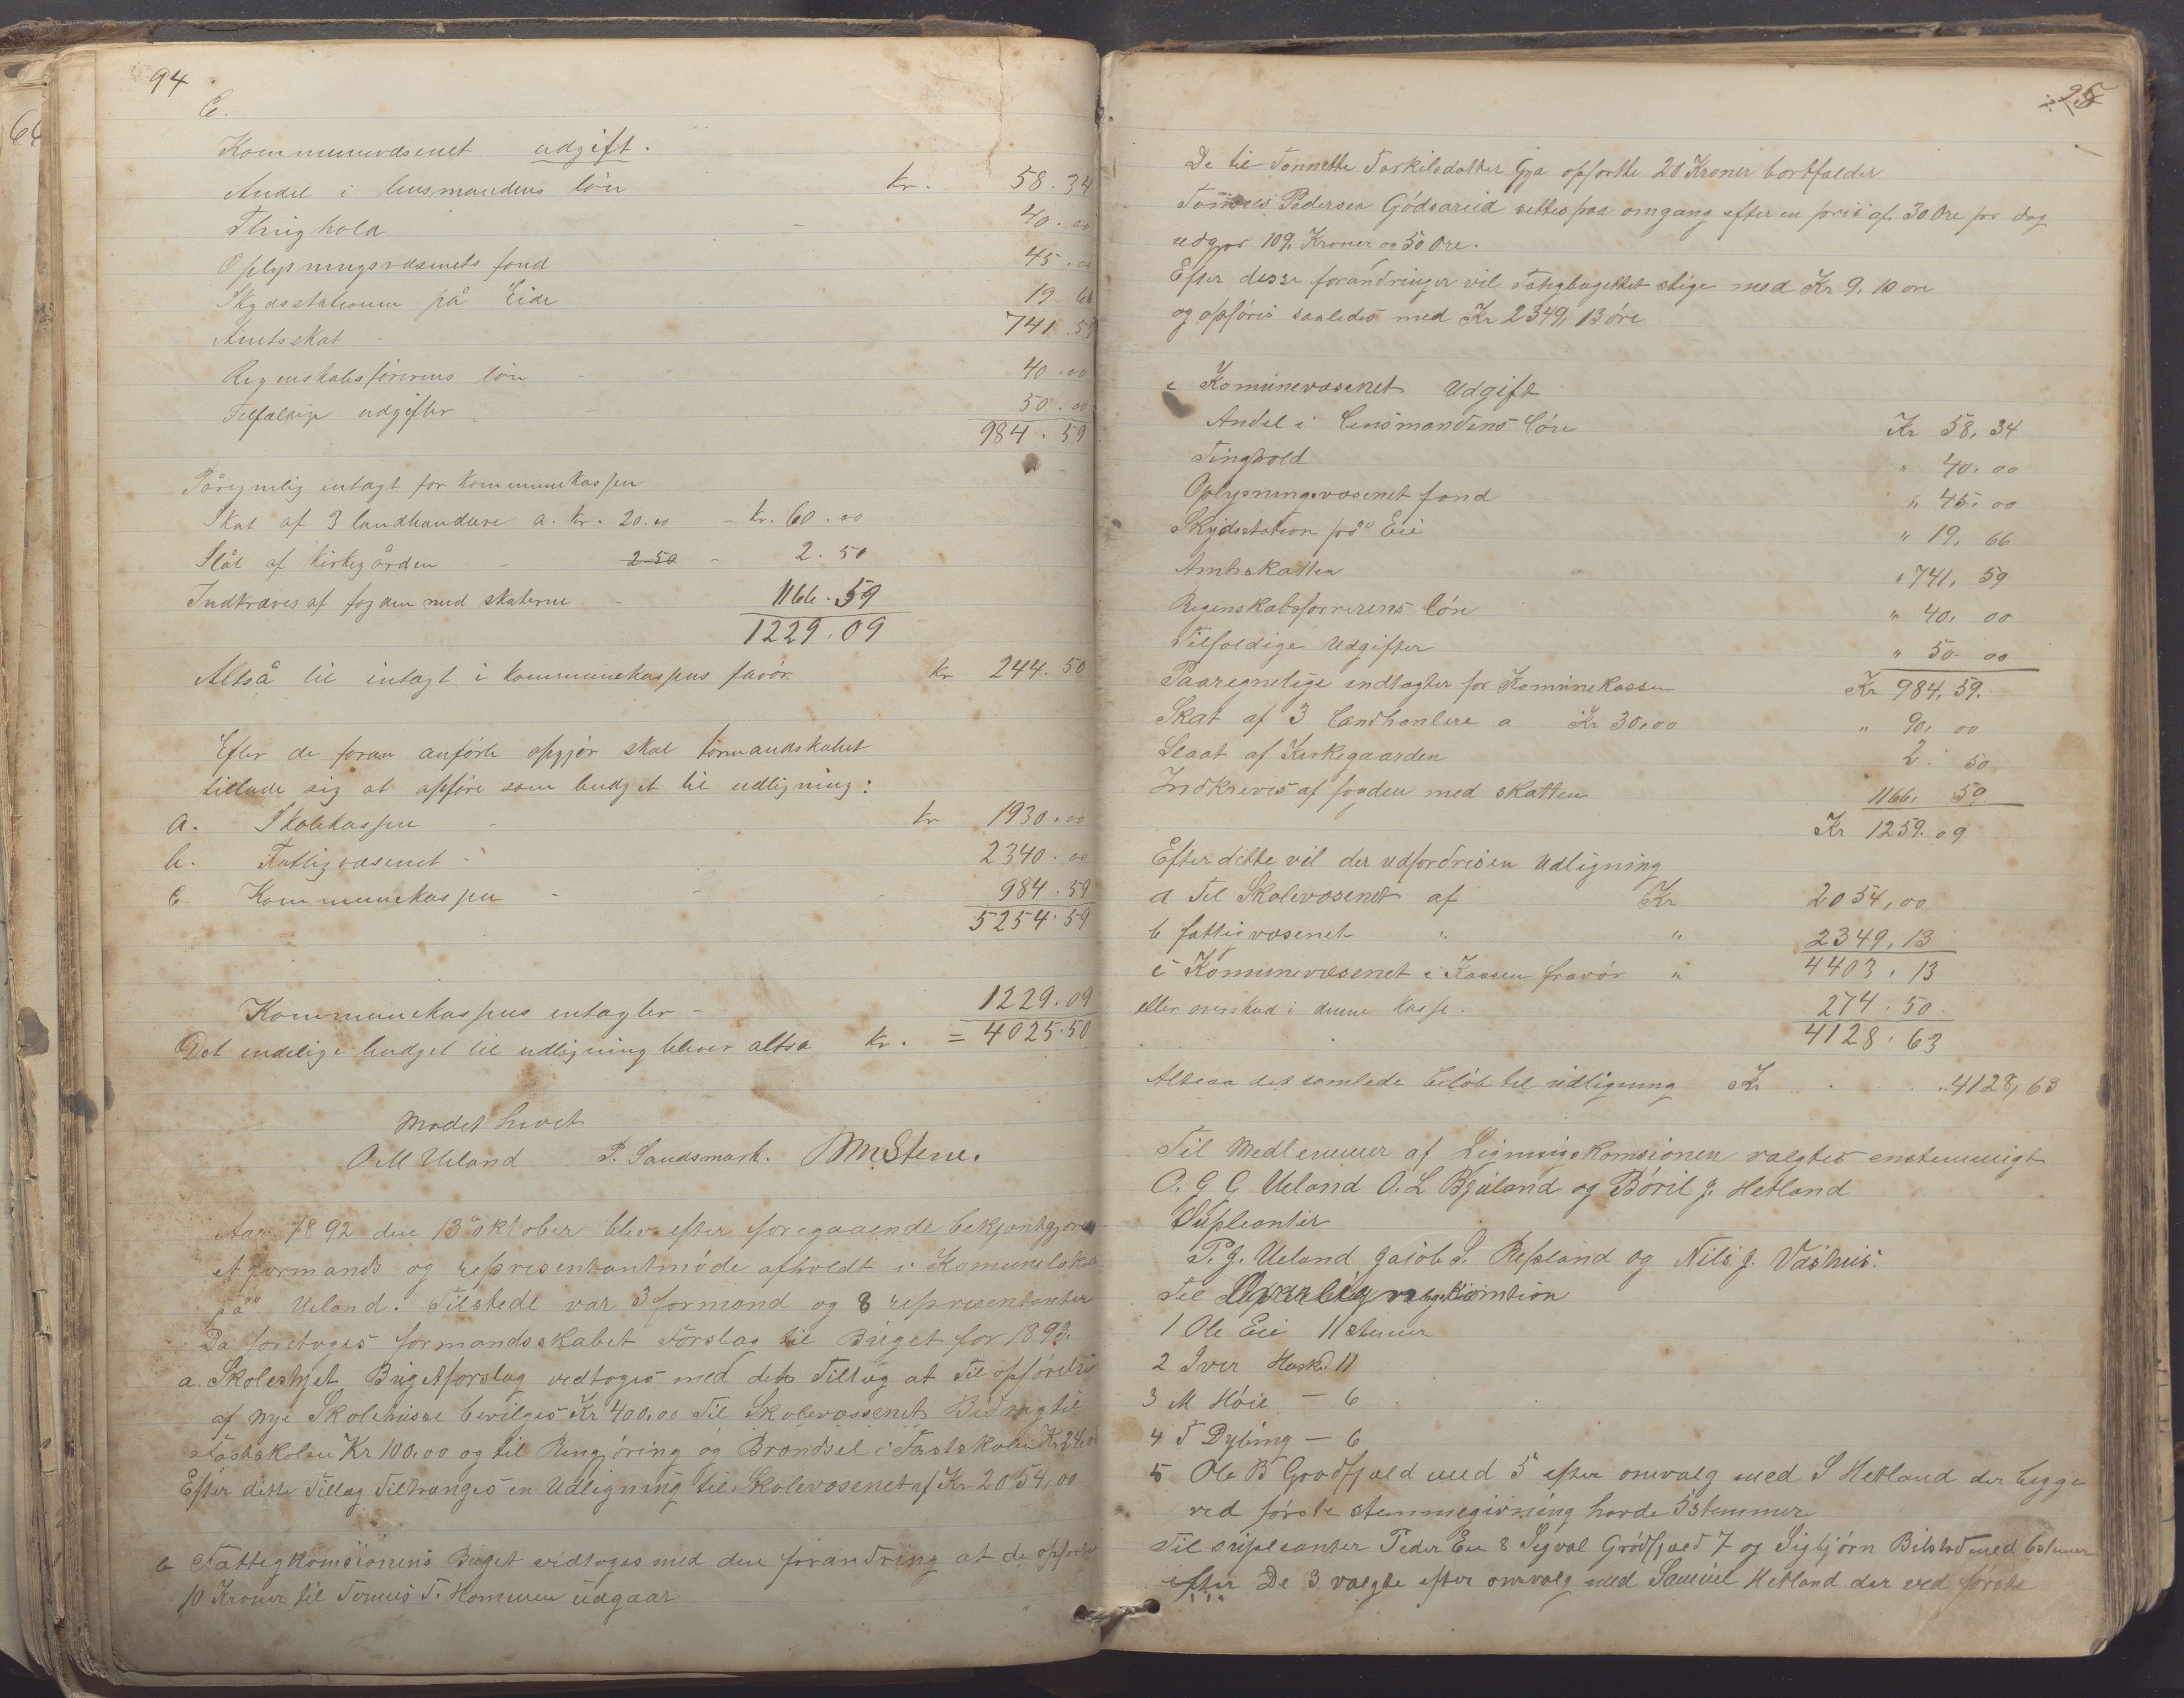 94
C.
Kommunevæsenet udgift.
Andel i lensmandens løn kr. 58.34
Thinghold - 40.00
Oplysningsvæsenets fond 45.00
Skydsstationen på Eide 19.66
Amtsskat - 741.59
Regnskabsførerens løn - 40.00
Tilfældige udgifter 50.00
984.59
Påregnelig intægt for kommunekassen
Skat af 3 landhandlere a. kr. 20.00 - kr. 60.00
Slåt af kirkegården - 2.50 - 2.50
Indkræves af fogden med skaterne - 1166.59
1229.09
Altså til intægt i kommunekassens favør. kr 244.50
Efter de foran anførte opgjør skal formandskabet
tillade sig at opføre som budget til udligning:
a. Skolekassen - kr 1930.00
b. Fattigvæsenet - 2340.00
C. Kommunekassen - - - 984.59
5254.59
Kommunekassens intægter - 1229.09
Det endelige budget til udligning bliver altså kr. = 4025.50
Mødet hævet
O M Ueland P. Sandsmark. BMStene.
Aar 1892 den 13de oktober blev efter foregaaende bekjentgjørelse
et formands og representantmøde afholdt i Komunelokal
på Ueland. Tilstede var 3 formænd og 8 representanter
Da foretoges formandsskabet Forslag til Buget for 1893.
a. Skolestyret Bugetforslag vedtoges med det Tillæg at Til opførelse
af nye Skolehusse bevilges Kr 400.00 Til Skolevæssenet Bidrag til
Fastskolen Kr 100.00 og til Rengjøring og Brændsel i Fastskolen Kr 24.00
Efter dette Tillæg Tiltrænges en Udligning til Skolevæsenet af Kr 2054,00
b Fattigkomsionens Buget vedtoges med den forandring at de opførte
10 Kroner til Tønnes T. Hommen udgaar
95
De til Tonnette Torkilsdatter Gya opførte 20 Kroner bortfalder
Tønnes Pedersen Gódsareid settes paa omgang efter en pris af 30 Øre pr dag
udgjør 109. Kroner og 50 Øre.
Efter desse forandringer vil Fatigbugettet stige med Kr 9, 10 øre
og opføris saaledes med Kr 2349, 13 øre
c Komunevæsenet Udgift
Andel i Lensmandens Løn Kr 58, 34
Tinghold " 40. 00
Oplysningsvæsenet fond " 45. 00
Skydsstation på Eie " 19, 66
Amtskatten " 741, 59
Regenskabsførrerens løn " 40, 00
Tilfældige Udgifter " 50 00
Paaregnelige indtægter for Komunekassen Kr 984, 59.
Skat af 3 landhanlere a Kr 30.00 " 90, 00
Slaat af Kirkegaarden 2. 50
Indkreves af fogden med skatten 1166. 59
Kr 1259.09
Efter dette vil der udfordres en Udligning
a Til Skolevæsenet af Kr 2054,00
b fattigvæsenet " " 2349,13
4403,13
c Komunevæsenet i Kassen fravør "
eller overskud i denne kasse. 274.50.
4128.63
Altsaa det samlede beløb til udligning Kr . . 4128,63
Til Medlemmer af Ligningskomsionen valgtes enstemmigt
O. G G Ueland O. L Bjuland og Bóril J. Hetland
Supleanter
P. J. Ueland Jakob S. Refsland og Nils J. Vashus.
Til Overligningskomtion
1 Ole Eie 11 stemer
2 Iver 11
3 M Høie - 6
4 T Dybing - 6
5 Ole B Grødfjæld med 5 efter omvalg med S Hetland der begge
ved første stemmegivning havde 5 stemmer
Til supleanter Peder Eie 8 Sigval Grødfjæld 7 og Sigbjørn Bilstad med 6 stemer
efter De 3 valgte efter omvalg med Samuel Hetland der ved første